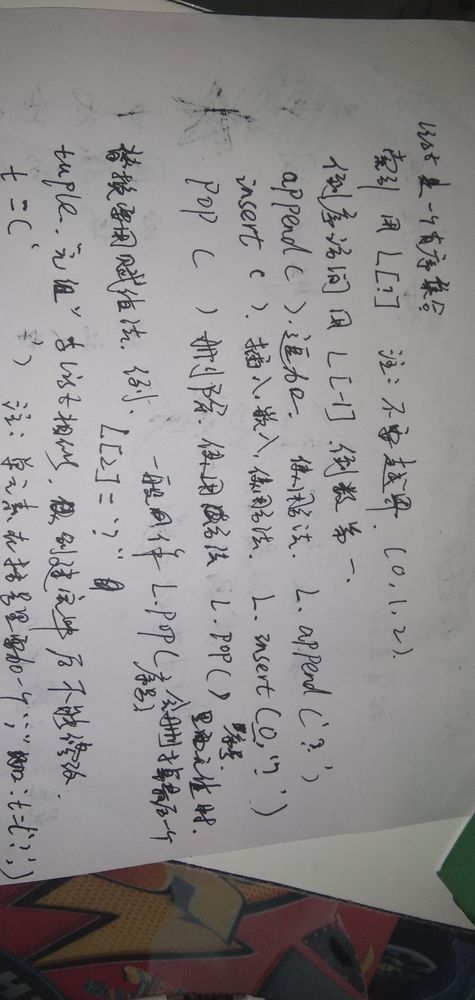 list是一个有序集合
索引用L[?] 注:不要越界.(0,1,2).
倒序访问用L[-1].倒数第一、
append( ).追加. 使用方法. L.append('?')
insert( ).插入,嵌入,使用方法. L.insert(0,'?')
序号.
Pop( )删除. 使用方法 L.POP() 里面无值时.
会删掉最后一个
一般用作L.POP(序号)
替换要用赋值法.例、L[2]='?'
tuple.元组" 与list相似,但创建完毕后不能修改.
t=(' ') 注:单元素在括号里要加一个',' 如:t=('?',)